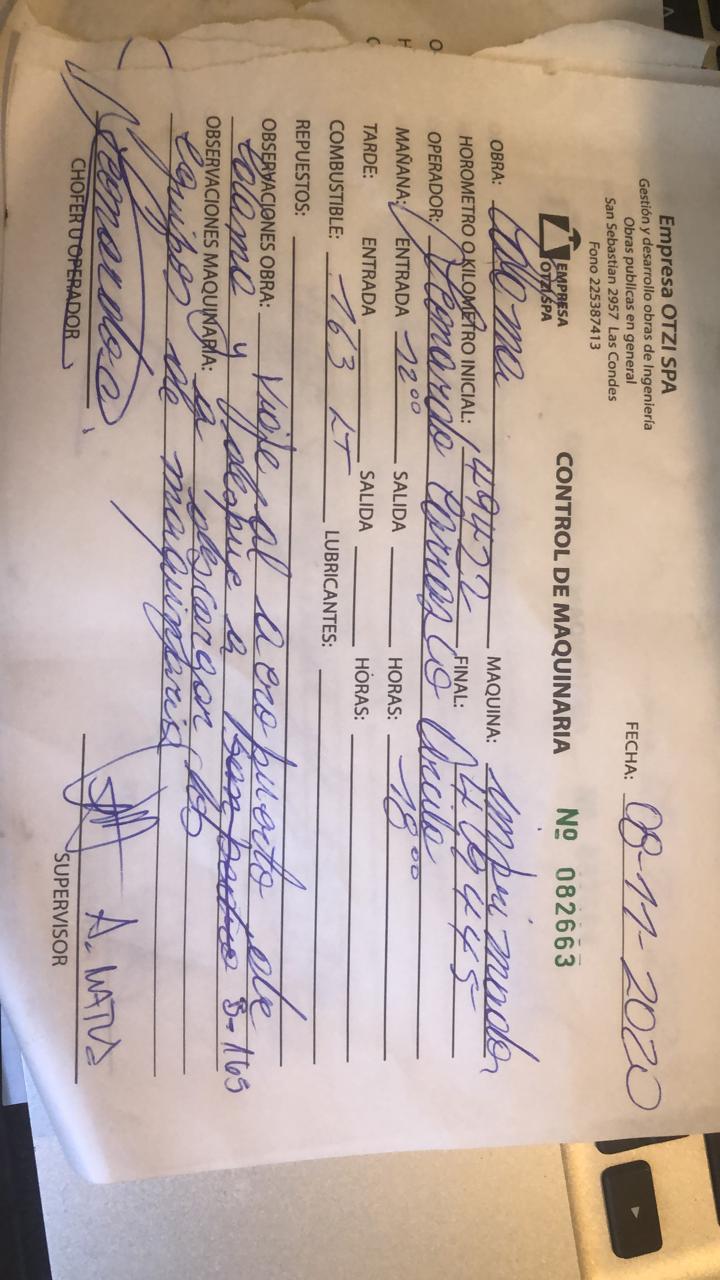 Empresa OTZI SPA
Gestión y desarrollo obras de Ingeniería
Obras publicas en general
San Sebastian 2957 Las Condes
Fono 225387413
FECHA: 08-11-2020
EMPRESA
OTZI SPA
CONTROL DE MAQUINARIA Nº 082663
OBRA: MAQUINA: imprimador
HOROMETRO O KILOMETRO INICIAL: 49422 FINAL:
OPERADOR: Leonardo Carrasco
MAÑANA: ENTRADA 12°° SALIDA HORAS: 18°°
TARDE: ENTRADA SALIDA HORAS:
COMBUSTIBLE: 163 LT LUBRICANTES:
REPUESTOS:
OBSERVACIONES OBRA: Viaje al aeropuerto de
y despue a B-165
OBSERVACIONES MAQUINARIA: a descargar los
equipos de maquinaria
CHOFER U OPERADOR
A. MATUS
SUPERVISOR